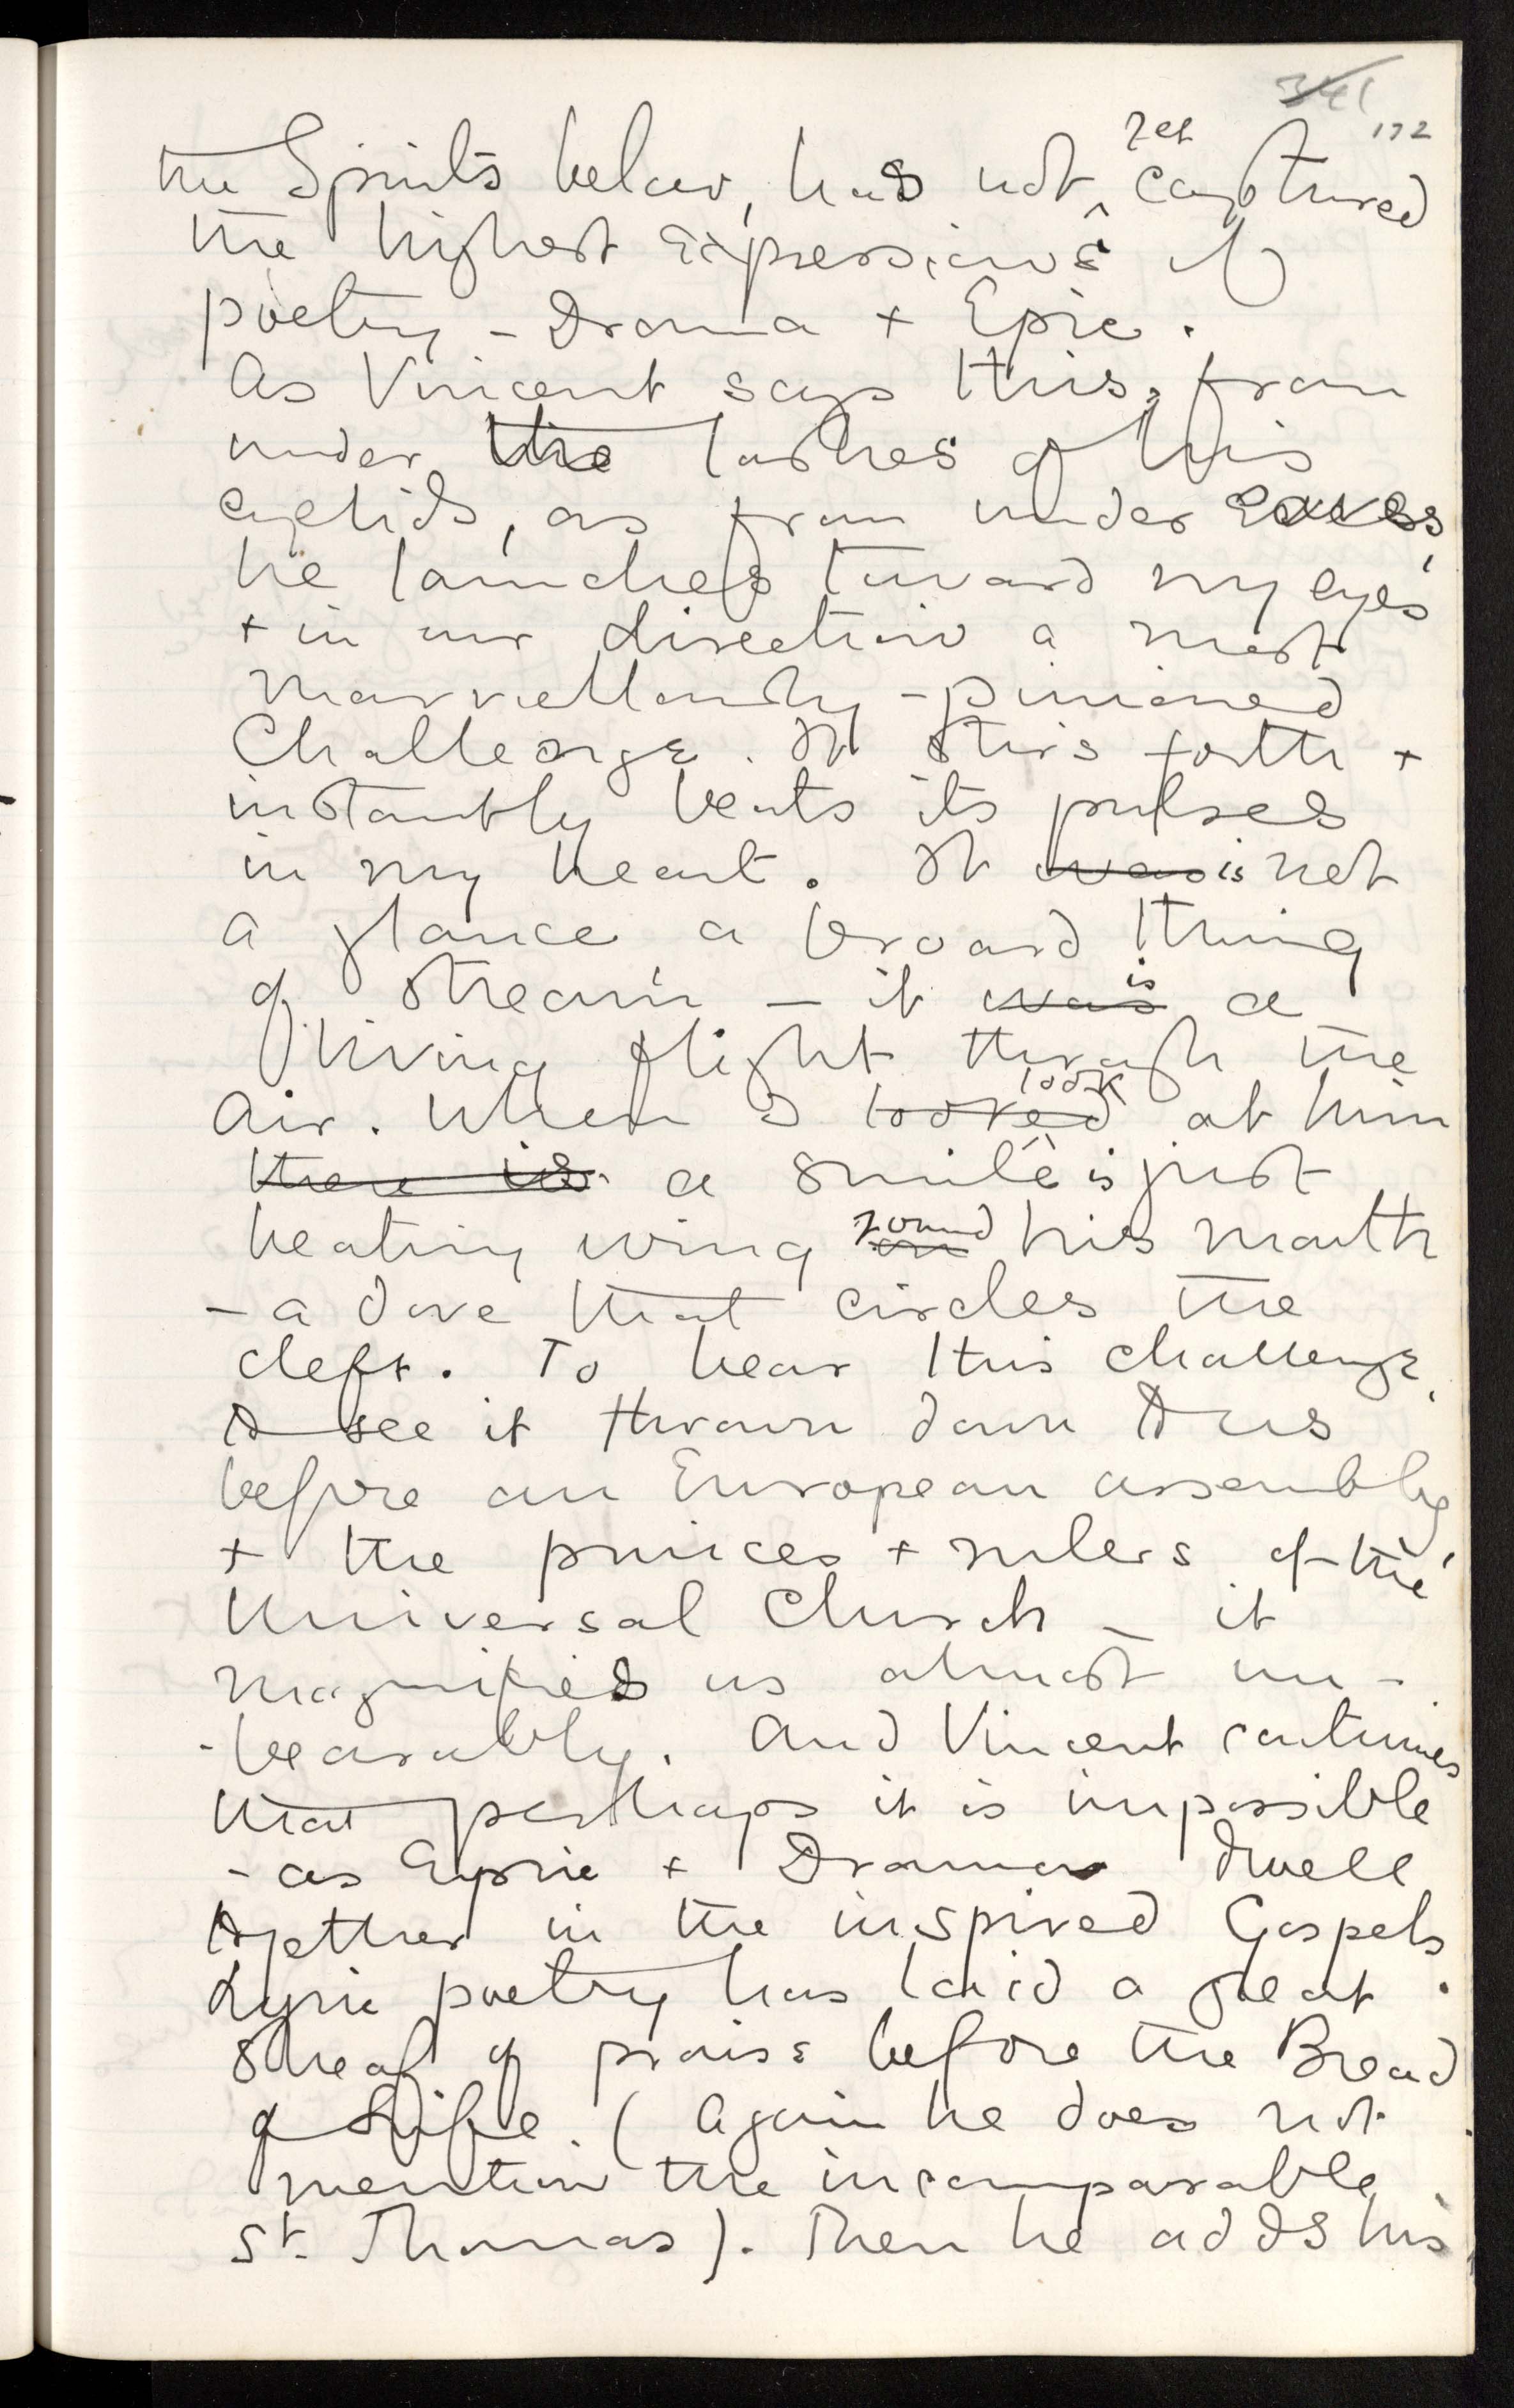 341
172
yet
the Spirits below, has not ^ captured
the highest expressions of
poetry – Drama + Epic.
As Vincent says this, from
under the lashes of his
eyelids, as from under eaves,
he launches toward my eyes
+ in our direction a most
marvellously – pinioned
Challenge. It stirs forth +
instantly beats its pulses
in my heart. It was is not
a glance a broad thing
of stream – it was is a
living flight through the
air. When I looked look at him
there is a smile is just
beating wing on round his mouth
– a dove that circles the
cleft. To hear this challenge,
to see it thrown down to us
before an European assembly,
+ the princes + rulers of the
Universal Church – it
magnifies us almost un-
-bearably. And Vincent continues
that perhaps it is impossible
– as Epic + Drama dwell
together in the inspired Gospels.
Lyric poetry has laid a great
Sheaf of praise before the Bread
of Life. (Again he does not
mention the incomparable
St. Thomas). Then he adds his